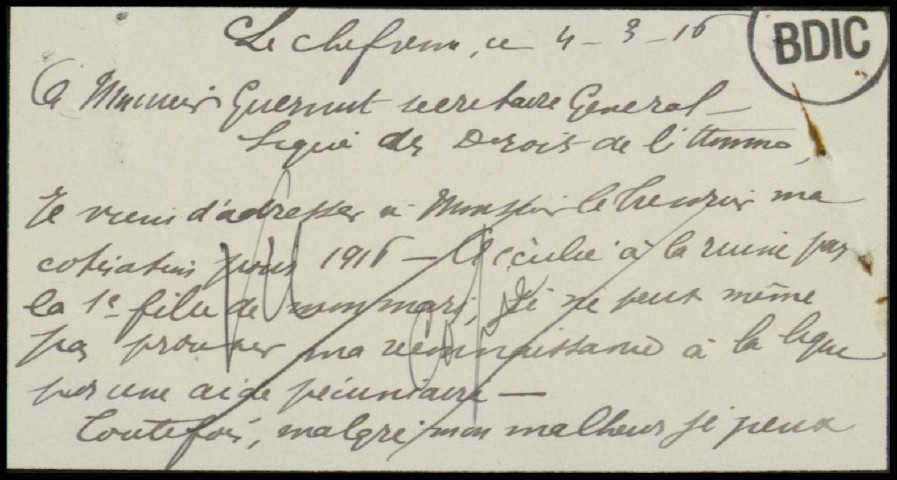 Le chefresne, ce 4 - 3 - 16
BDIC
A Monsieur Guernut secretaire General -
Ligue des Droits de l'Homme,
Je viens d'adresser à Monsieur le trésorier ma
cotisation pour 1916 - à la ruine par
la 1e fille de mon mari, je ne peux même
pas prouver ma reconnaissance à la ligue
par une aide pécuniaire -
Toutefois, malgré mon malheur si je peux